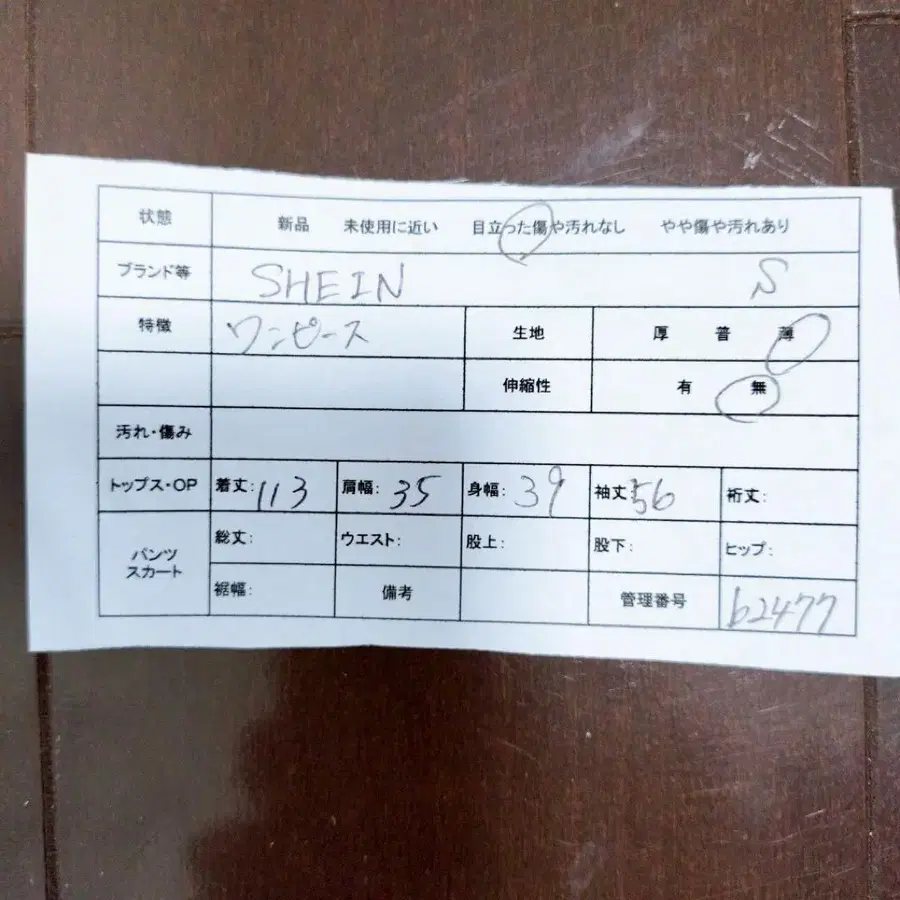 状態 新品 未使用に近い 目立った傷や汚れなし やや傷や汚れあり
ブランド等 SHEIN S
特徴 ワンピース 生地 厚 普 薄
伸縮性 有 無
汚れ・傷み
トップス・OP 着丈: 113 肩幅: 35 身幅: 39 袖丈 56 裄丈:
パンツ スカート
総丈: ウエスト: 股上: 股下: ヒップ:
裾幅: 備考 管理番号 b2477